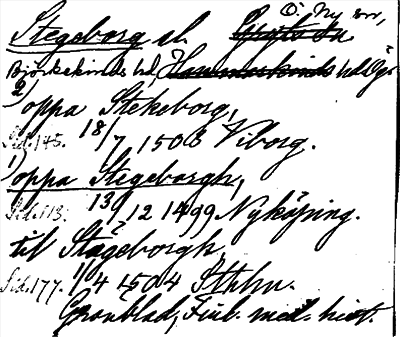 Ö. Ny sn,
Stegeborg sl.
Björkekinds hd, Hammarkinds hd Ög.
2) oppa Stekeborg,
Sid. 145. 18/7 1503 Viborg.
1) oppa Stegeborgh,
Sid. 113. 13/12 1499 Nyköping.
til Stägeborgh
Sid. 177. 1/4 1504 Sthlm.
Grönblad, Finl. med. hist.